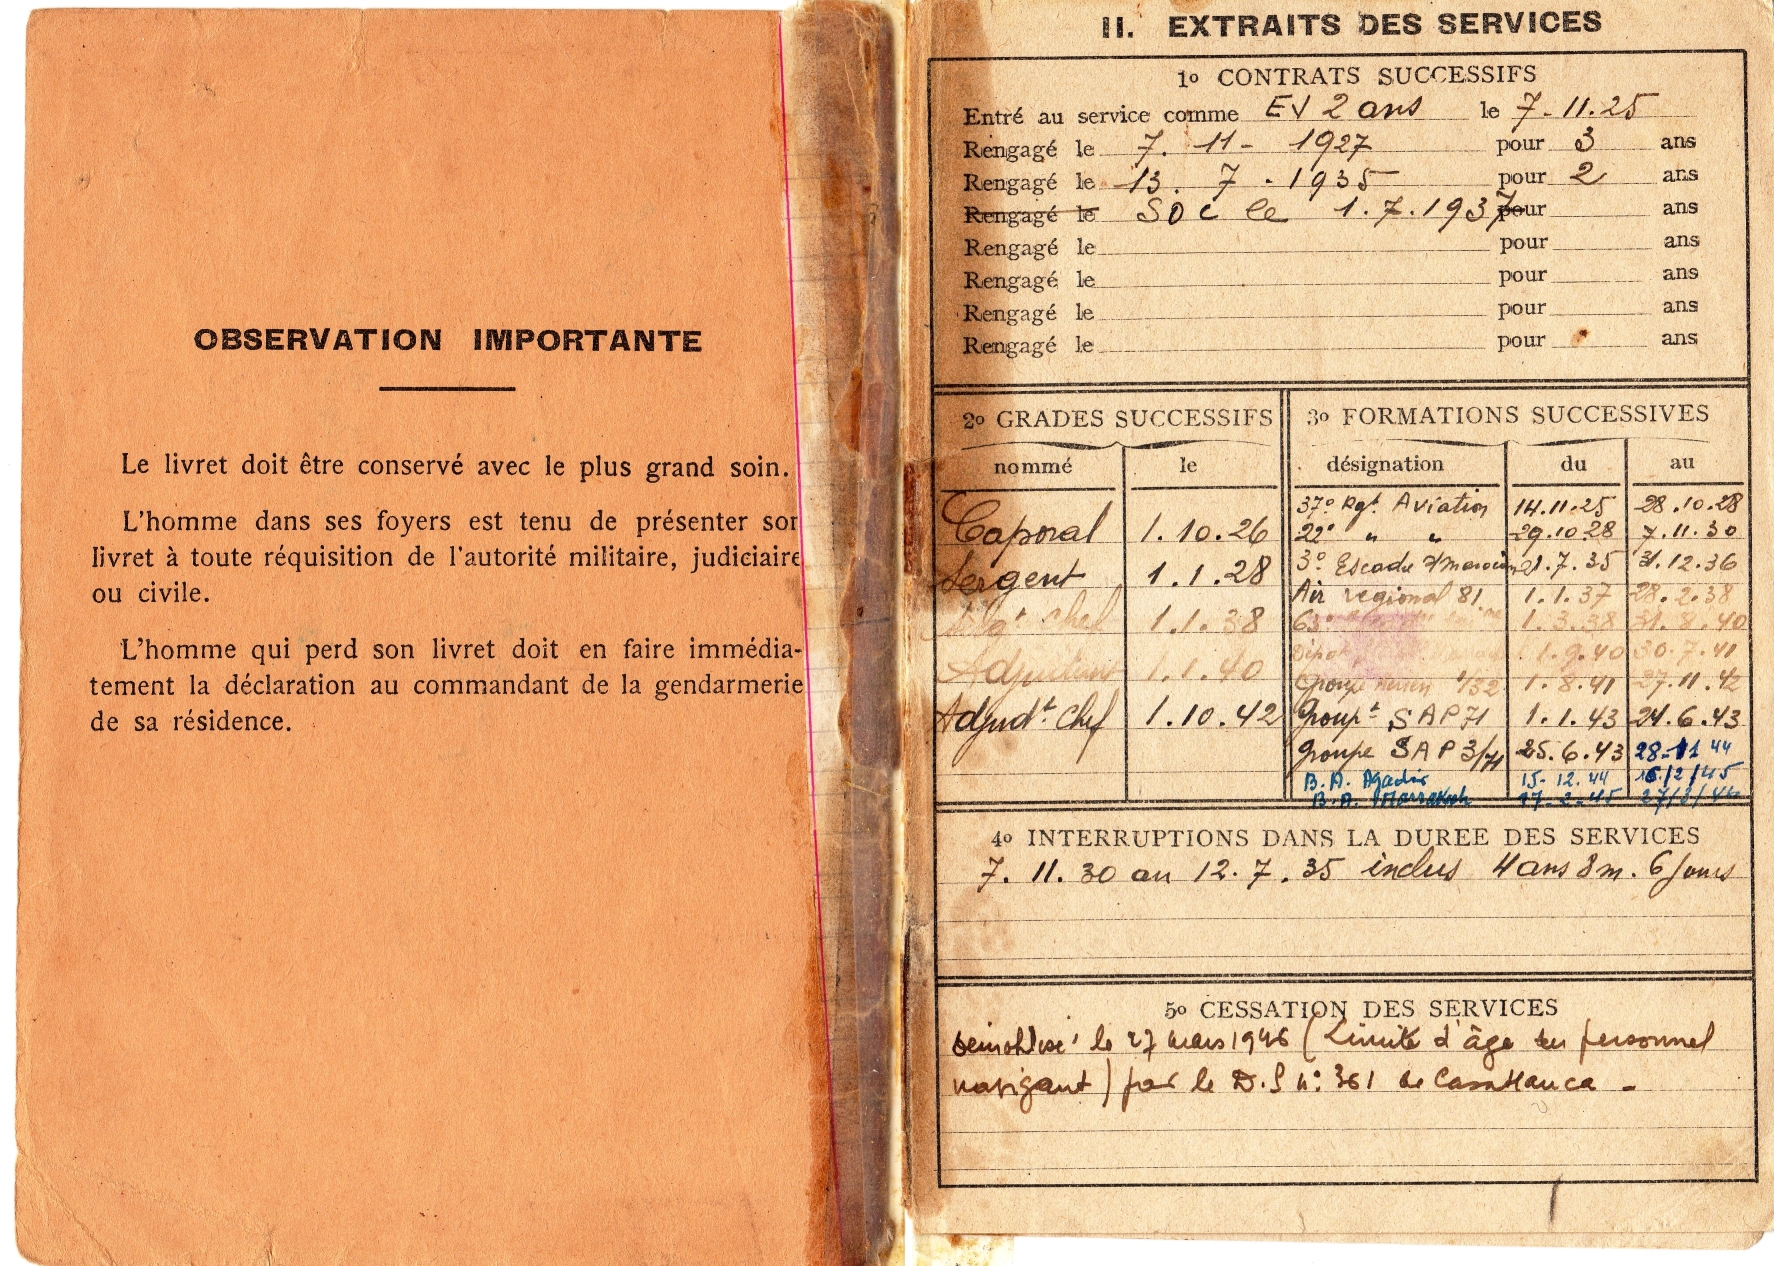 OBSERVATION IMPORTANTE
Le livret doit être conservé avec le plus grand soin.
L'homme dans ses foyers est tenu de présenter son
livret à toute réquisition de l'autorité militaire, judiciaire
ou civile.
L'homme qui perd son livret doit en faire immédia-
tement la déclaration au commandant de la gendarmerie
de sa résidence.
II. EXTRAITS DES SERVICES
1º CONTRATS SUCCESSIFS
Entré au service comme EV 2 ans le 7-11.25
Rengagé le 7. 11- 1927 pour 3 ans
Rengagé le 13. 7 - 1935 pour 2 ans
Rengagé le SOC le 1.7.1937 pour ans
Rengagé le pour ans
Rengagé le pour ans
Rengagé le pour ans
Rengagé le pour ans
2º GRADES SUCCESSIFS
nommé le
Caporal 1.10.26
Sergent 1.1.28
Serg. chef 1.1.38
Adjudant 1.1.40
Adjudt. chef 1.10.42
3º FORMATIONS SUCCESSIVES
désignation du au
37º Rgt. Aviation 14.11.25 28.10.28
22º " " 29.10.28 7.11.30
3º Escadre 7.35 31.12.36
Air régional 81 1.1.37 28.2.38
63º 1.3.38 31.8.40
Dépot 1.9.40 30.7.41
Groupe 1/32 1.8.41 27.11.42
Groupt SAP 71 1.1.43 24.6.43
Groupe SAP 3/71 25.6.43 28-11 44
B.A. Agadir 15-12.44 /2/45
B.A. Marrakech 17-2-45
4º INTERRUPTIONS DANS LA DUREE DES SERVICES
7. 11. 30 au 12. 7. 35 inclus 4 ans 8 m. 6 jours
5º CESSATION DES SERVICES
Démobilisé le 27 mars 1946 (Limite d'âge du personnel
navigant) par le D.S nº 361 de Casablanca -